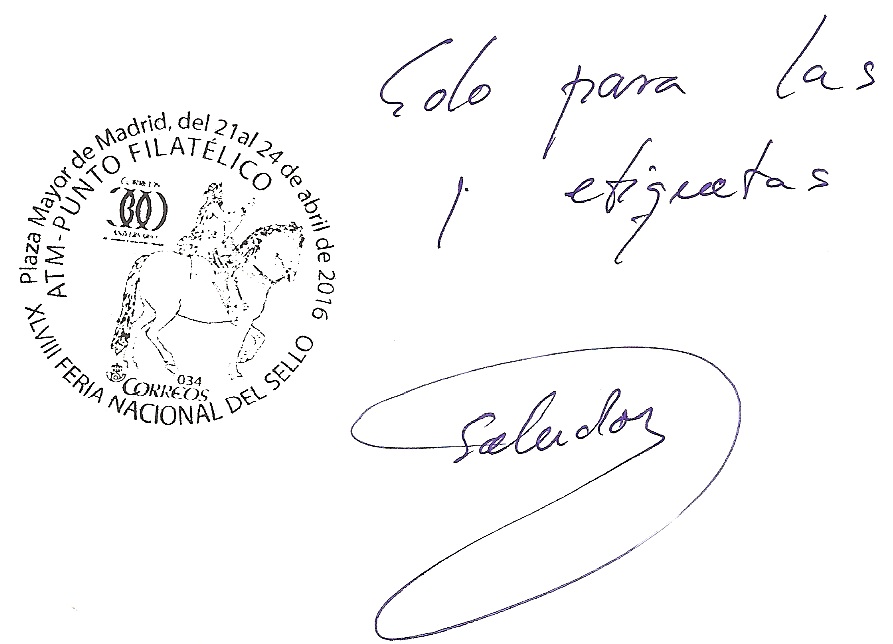 Plaza Mayor de Madrid, del 21 al 24 de abril de 2016
ATM-PUNTO FILATÉLICO
CORREOS
300
ANIVERSARIO
034
CORREOS
XLVIII FERIA NACIONAL DEL SELLO
Solo para las
etiquetas
Saludos